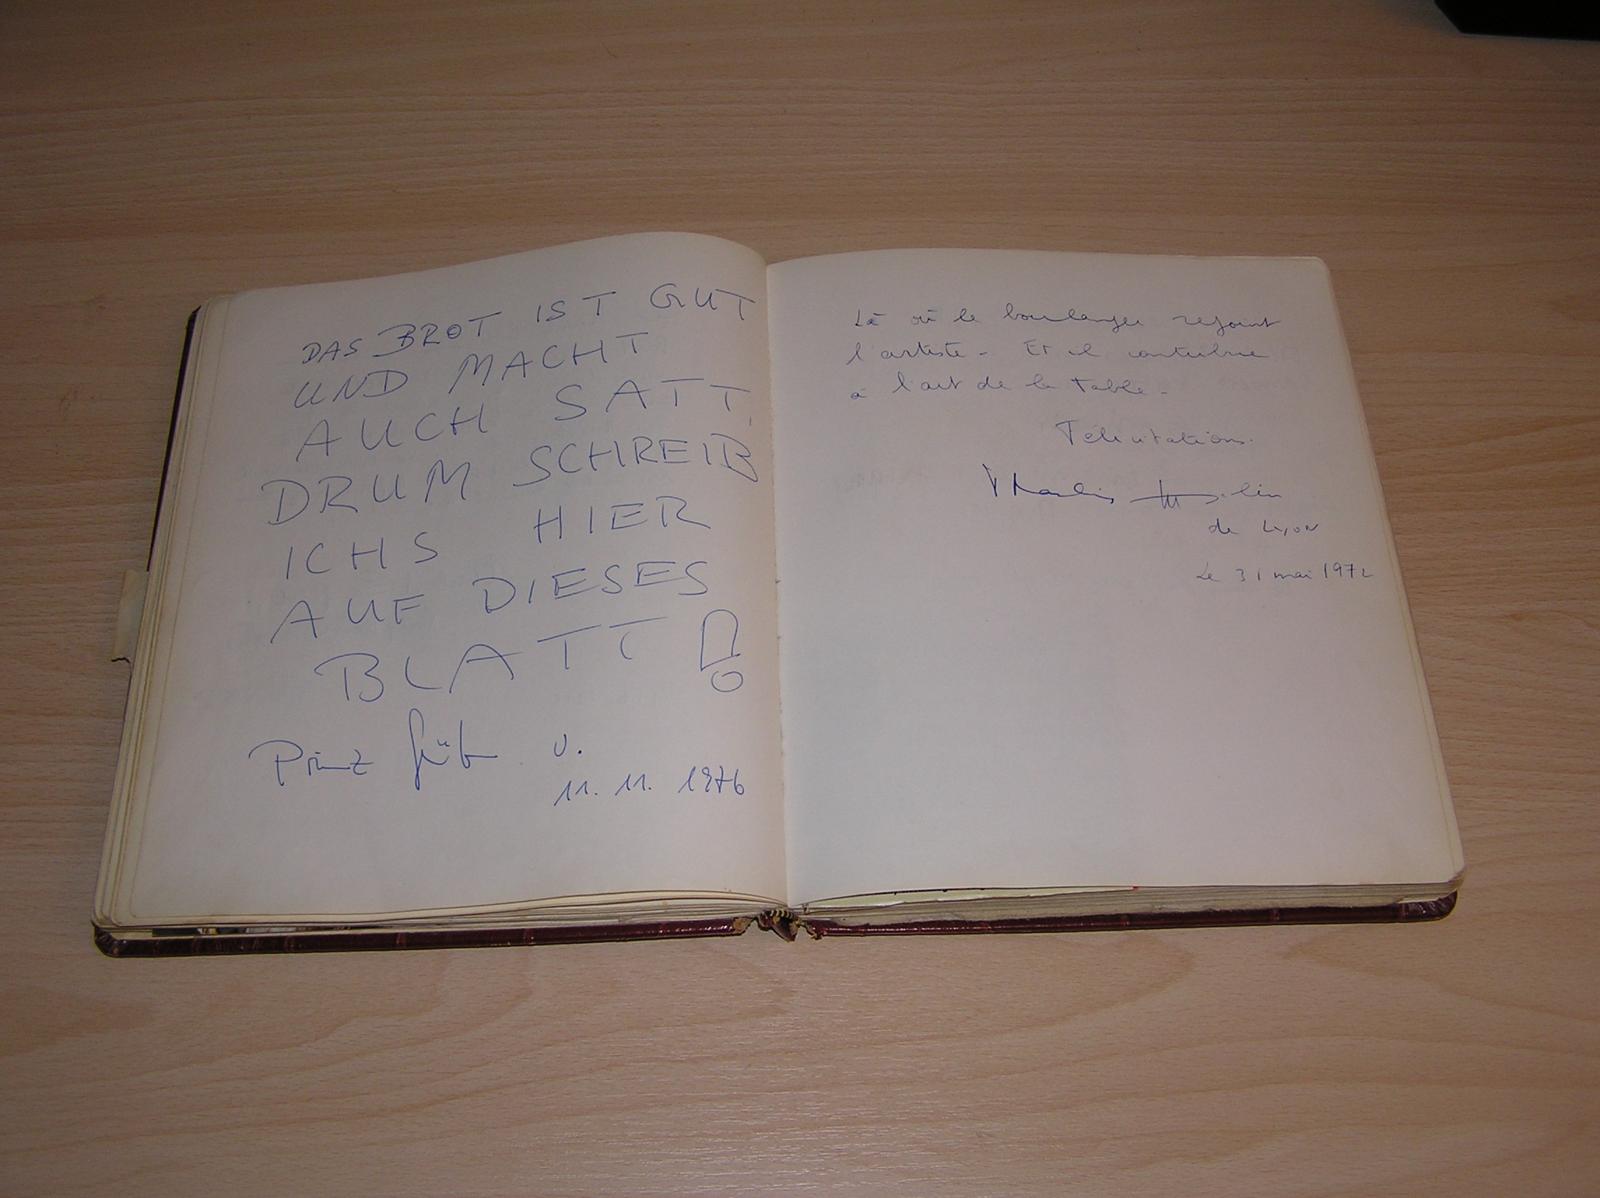 DAS BROT IST GUT
UND MACHT
AUCH SATT,
DRUM SCHREIB
ICHS HIER
AUF DIESES
BLATT!
Prinz v.
11. 11. 1976
Là où le boulanger rejoint
l'artiste - Et il contribue
à l'art de la Table -
Félicitations.
de Lyon
Le 31 mai 1972